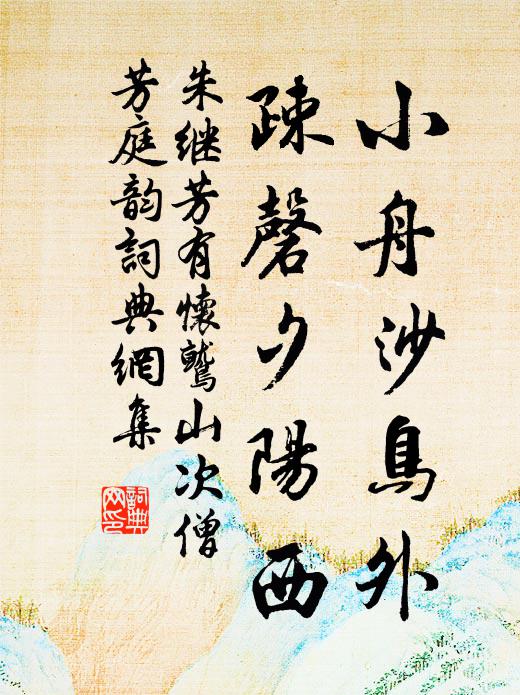 小舟沙鳥外
疎磬夕陽西
朱继芳有懷鷲山次僧
芳庭韵詞典網集
詞典
网印